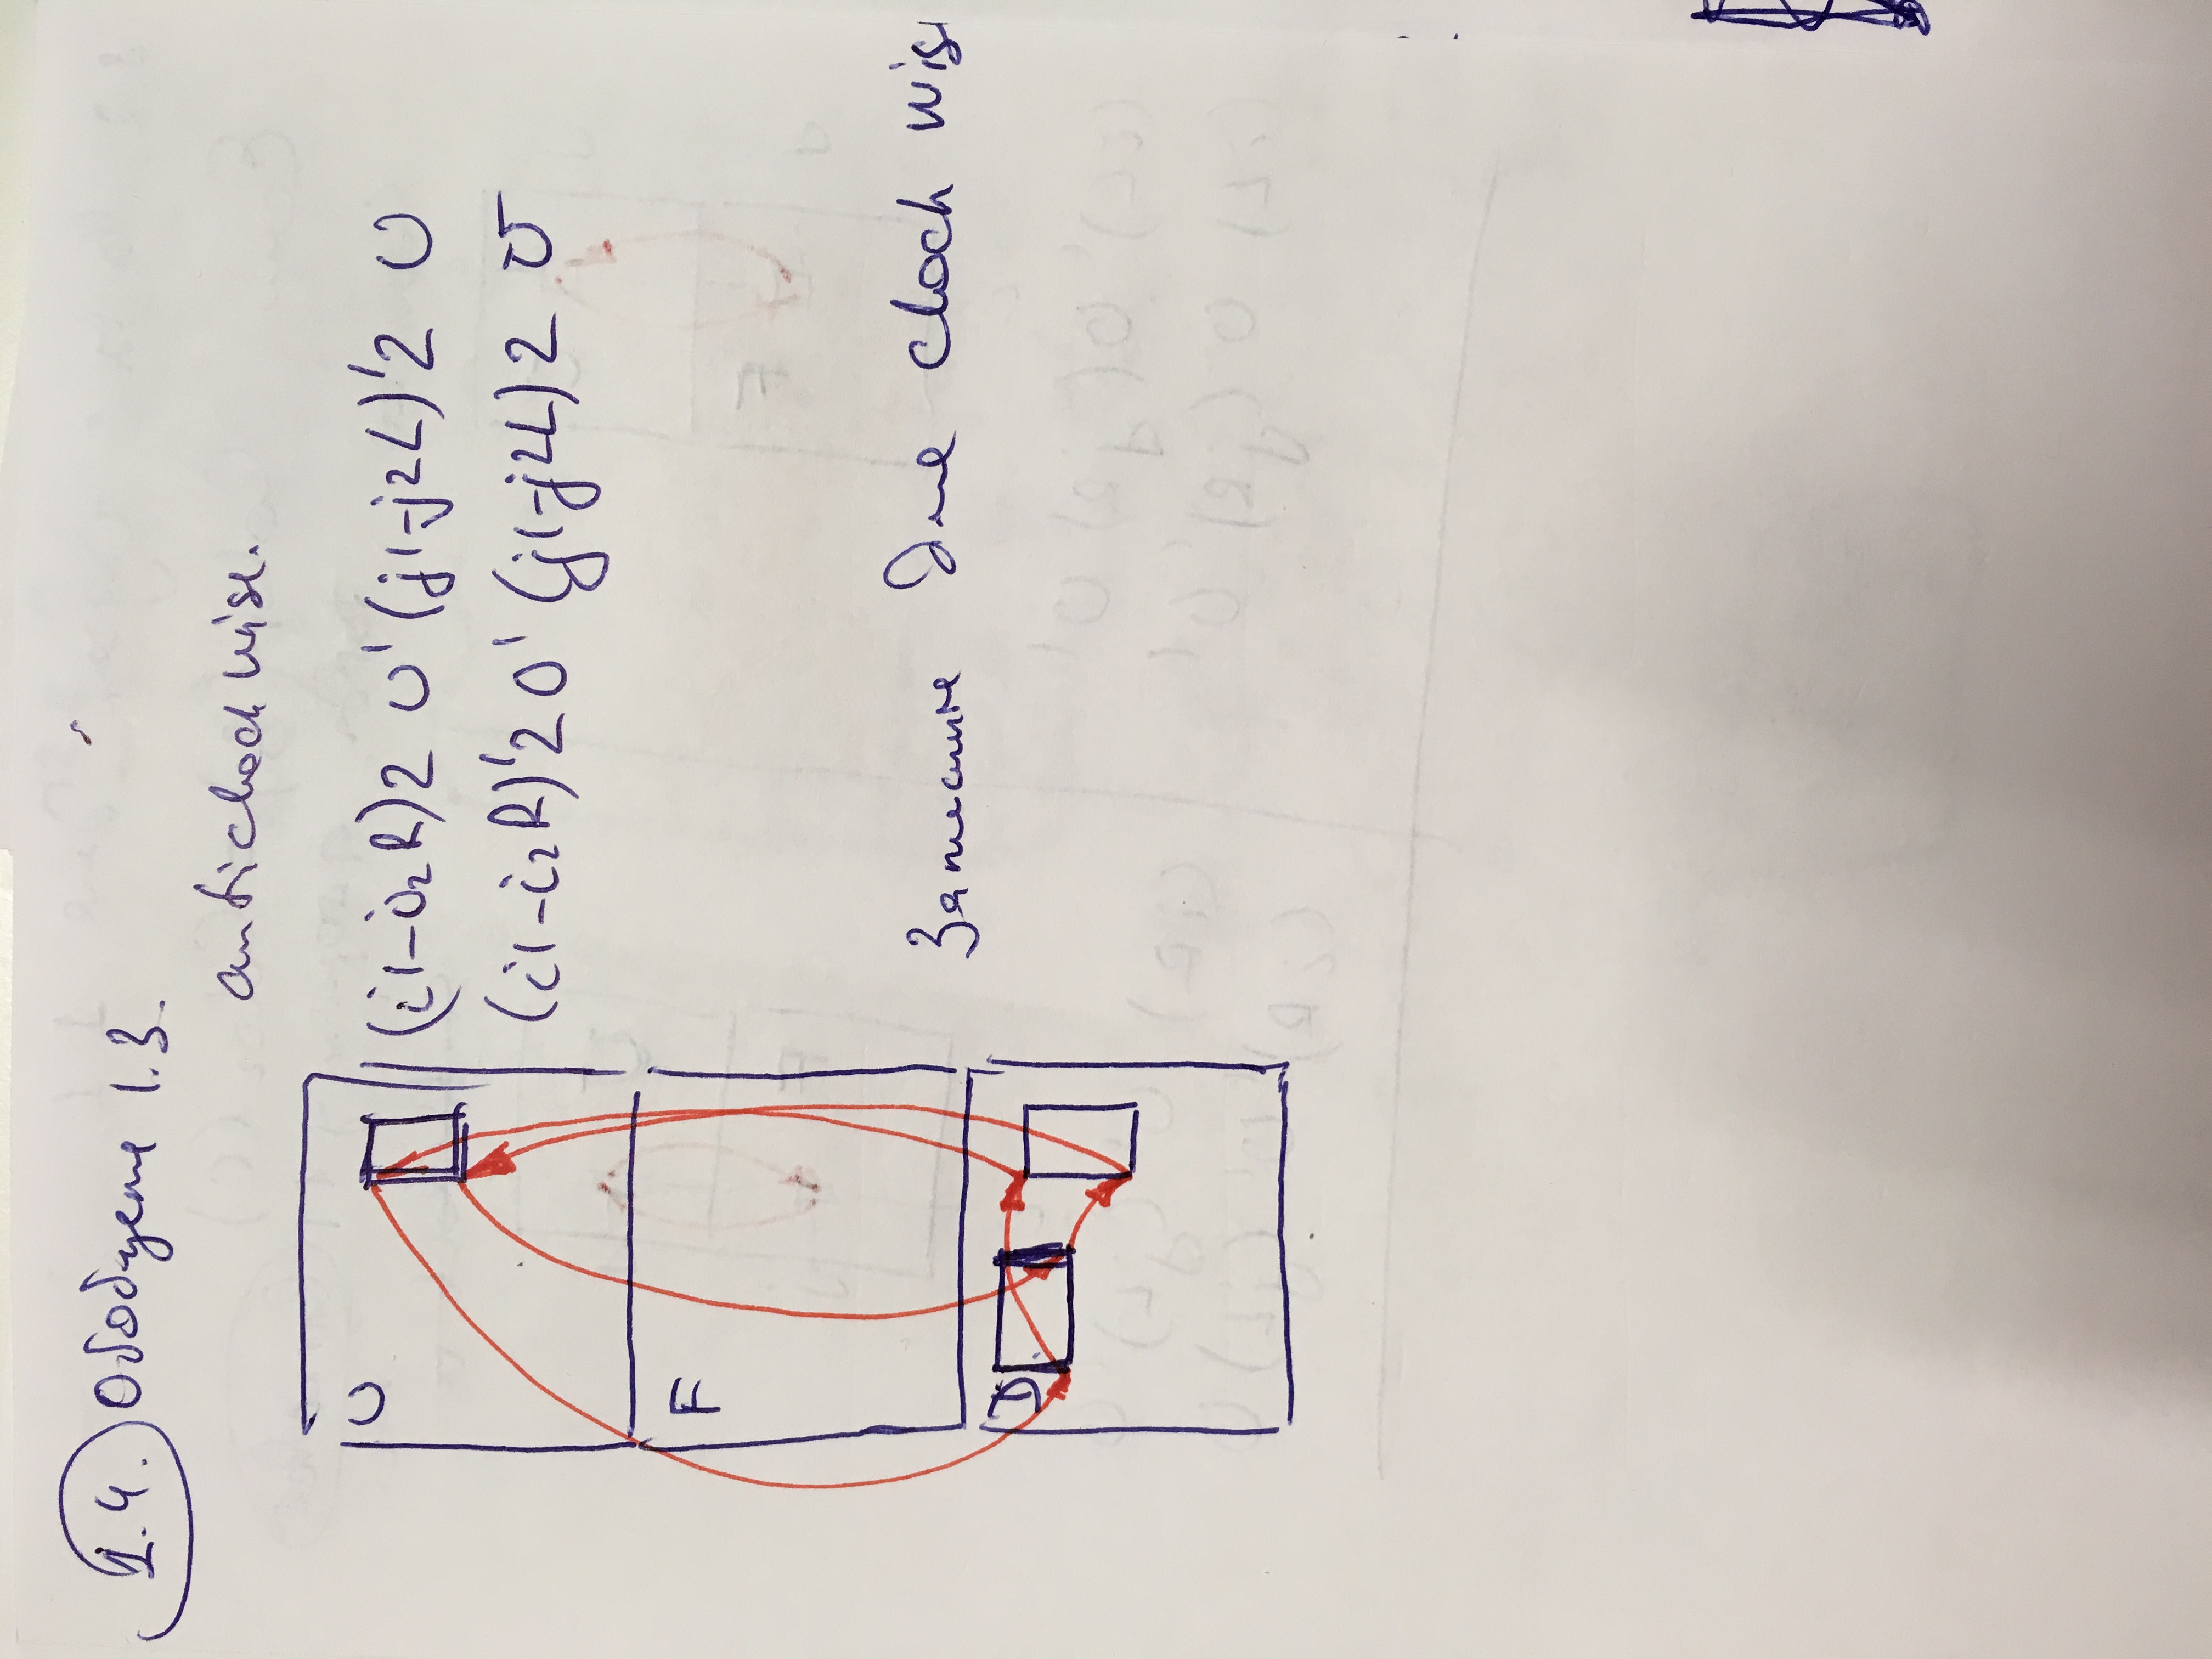 1.4. Обобщение 1.3.
anticlockwise.
U
(i1-i2R)2 U' (j1-j2L)'2 U
(i1-i2R)'2 U' (j1-j2L)2 U
F
Для clockwis
D